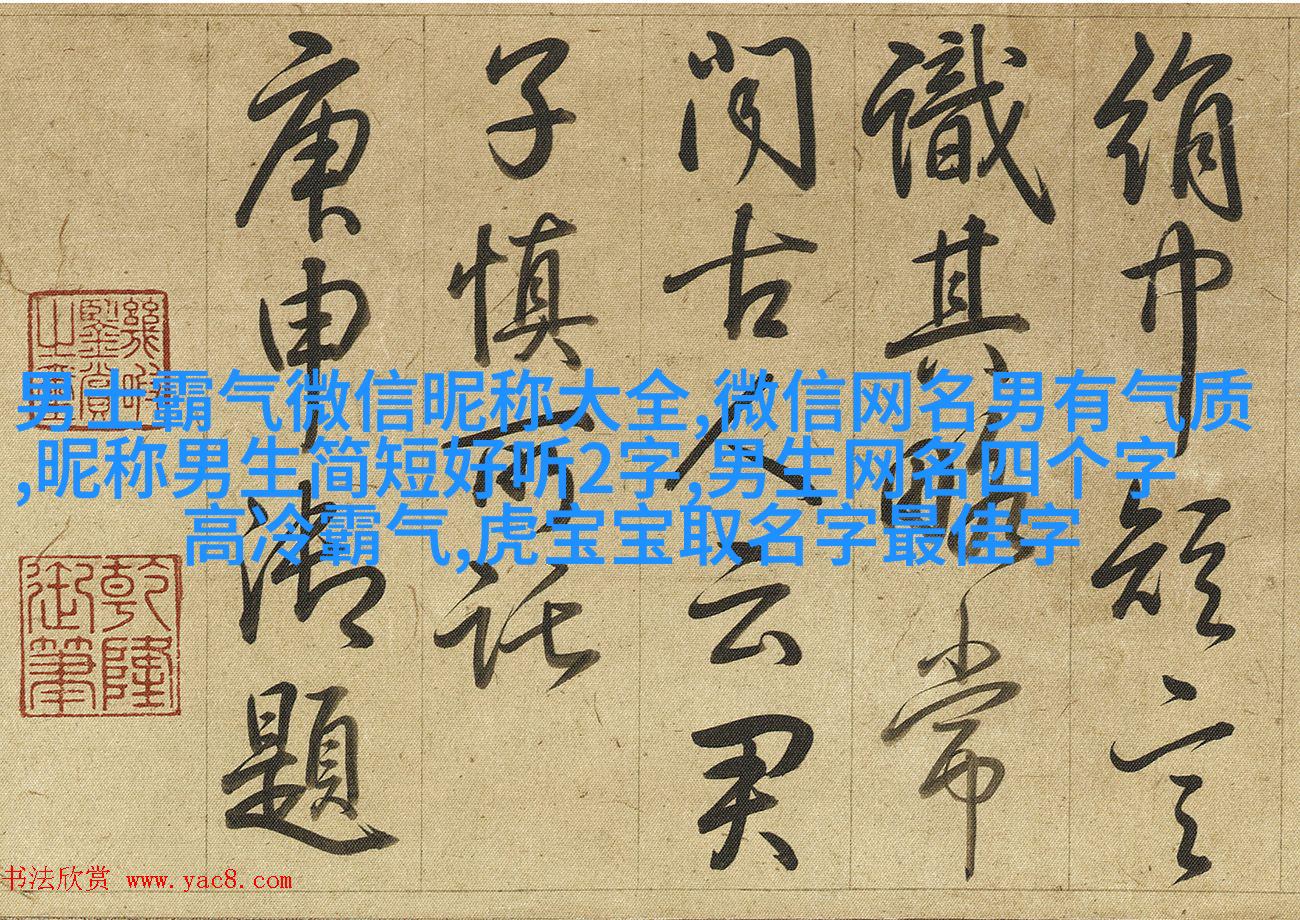 絹巾言
識其常
聞古人云君
子慎所託
庚申御題
乾隆御筆
男士霸气微信昵称大全,微信网名男有气质
,昵称男生简短好听2字,男生网名四个字
高冷霸气,虎宝宝取名字最佳字
书法欣赏 www.yac8.com